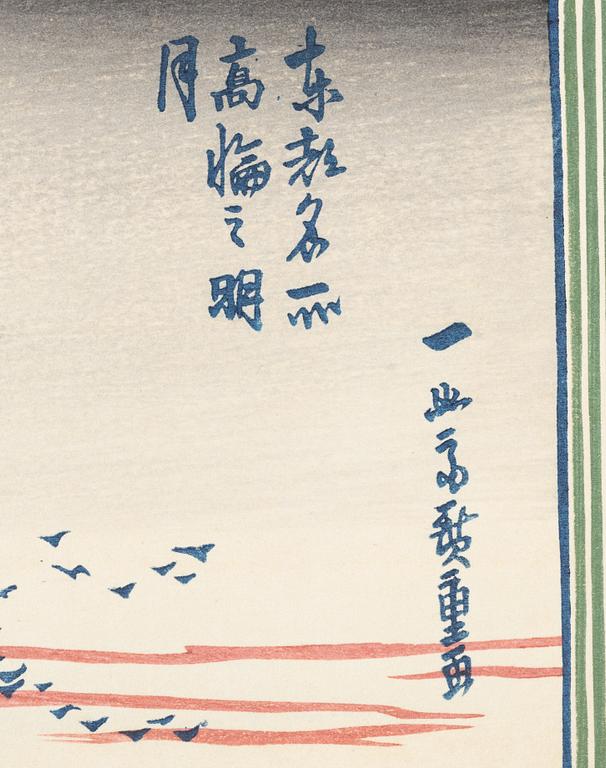 東都名所
高輪之明
月
一幽斎廣重画